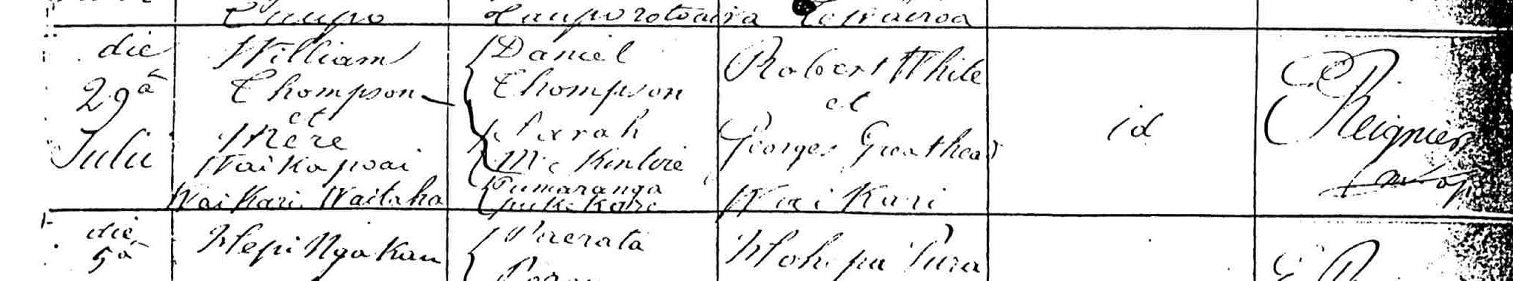 die
29ª
Julii
William
Thompson
et
Mere
Waikapoai
Waikari Waitaha
Daniel
Thompson
Sarah
Mc Kintire
Tumaranga
pukekore
Robert White
et
Georges Greathead
Waikari
id
E Reignier
die
5ª
Hepi Ngakau
Paerata
Hohepa Tura